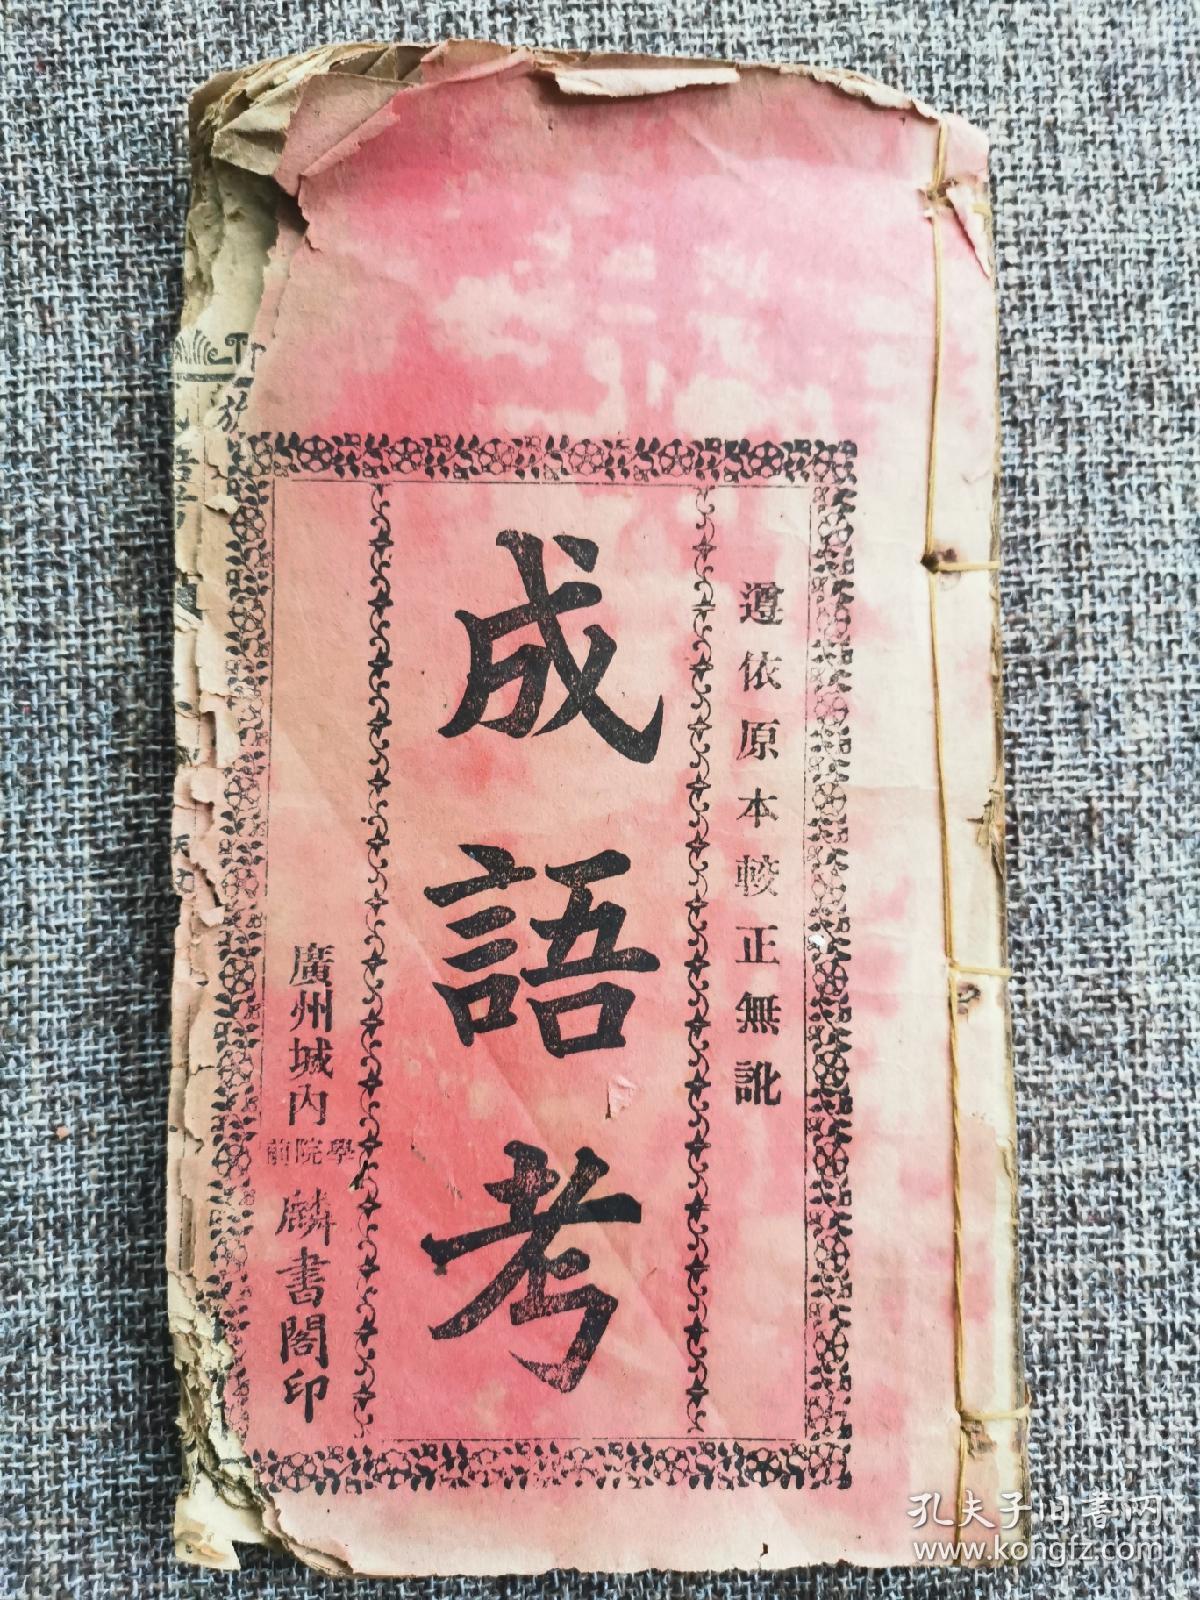 遵依原本較正無訛
成語考
廣州城内
學院前
麟書閣印
孔夫子旧书网
www.kongfz.com